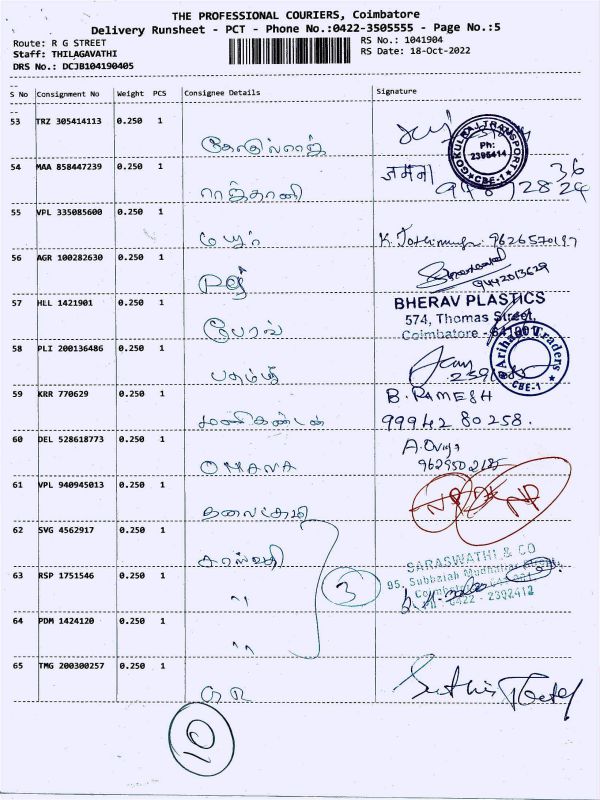 THE PROFESSIONAL COURIERS, Coimbatore
Delivery Runsheet - PCT - Phone No.:0422-3505555 - Page No.:5
Route: R G STREET
Staff: THILAGAVATHI
DRS No.: DCJB104190405
RS No.: 1041904
RS Date: 18-Oct-2022
S No Consignment No Weight PCS Consignee Details Signature
53 TRZ 305414113 0.250 1
GOKULRAJ TRANSPORT
Ph:
2395414
CBE-1
54 MAA 858447239 0.250 1
जमना
ராஜ்தானி
55 VPL 335085600 0.250 1
மயூர்
9626570197
56 AGR 100282630 0.250 1
9442013629
57 HLL 1421901 0.250 1
BHERAV PLASTICS
574, Thomas Street,
Coimbatore - 641001
பேரவ்
58 PLI 200136486 0.250 1
Arihant Traders
CBE-1
பதம்ஸ்ரீ
59 KRR 770629 0.250 1
B. RAMESH
மணிகண்டன் 99942 80258.
60 DEL 528618773 0.250 1
A. Oviya
9629502185
OMANA
61 VPL 940945013 0.250 1
ND
62 SVG 4562917 0.250 1
சரஸ்வதி
SARASWATHI & CO
95, Subbaiah Mudhaliar Street,
63 RSP 1751546 0.250 1
"
3
0422 - 2392412
64 PDM 1424120 0.250 1
"
65 TMG 200300257 0.250 1
GR
10